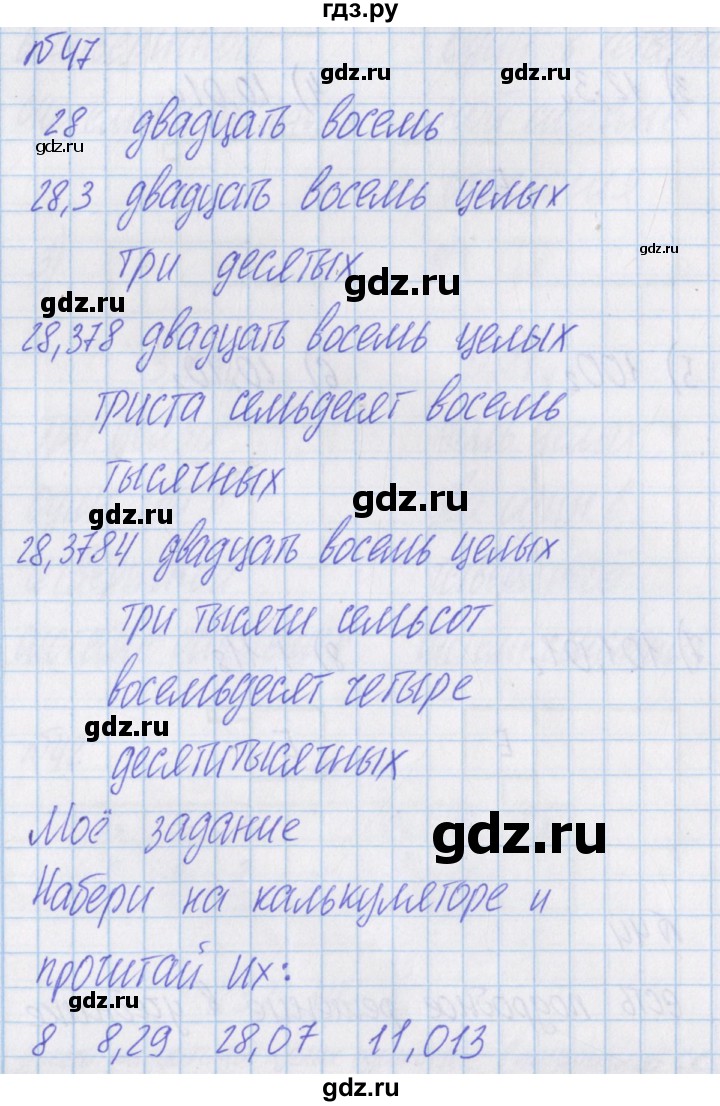 гдз.ру
№47
gdz.ru
28 двадцать восемь
gdz.ru
28,3 двадцать восемь целых
gdz.ru
три десятых
gdz.ru
gdz.ru
28,378 двадцать восемь целых
триста семьдесят восемь
тысячных
gdz.ru
gdz.ru
28,3784 двадцать восемь целых
три тысячи семьсот
восемьдесят четыре
gdz.ru
десятитысячных
Моё задание
gdz.ru
Набери на калькуляторе и
прочитай их:
gdz.ru
8 8,29 28,07 11,013
gdz.ru